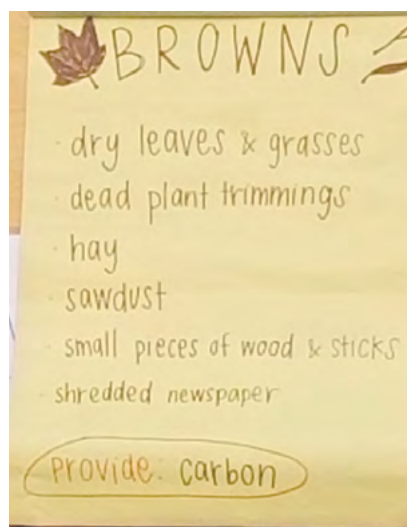 BROWNS
· dry leaves & grasses
· dead plant trimmings
· hay
· sawdust
· small pieces of wood & sticks
· shredded newspaper
provide: carbon